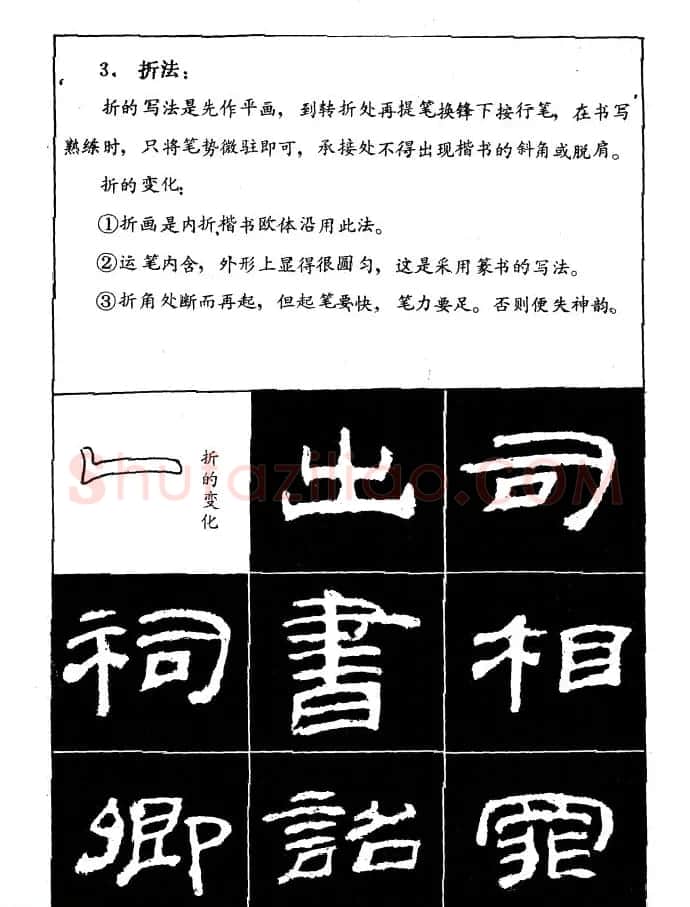 3. 折法：
折的写法是先作平画，到转折处再提笔换锋下按行笔，在书写
熟练时，只将笔势微驻即可，承接处不得出现楷书的斜角或脱肩。
折的变化：
①折画是内折，楷书欧体沿用此法。
②运笔内含，外形上显得很圆匀，这是采用篆书的写法。
③折角处断而再起，但起笔要快，笔力要足。否则便失神韵。
折的变化
出 司
祠 書 相
卿 詔
Shufaziliao.COM